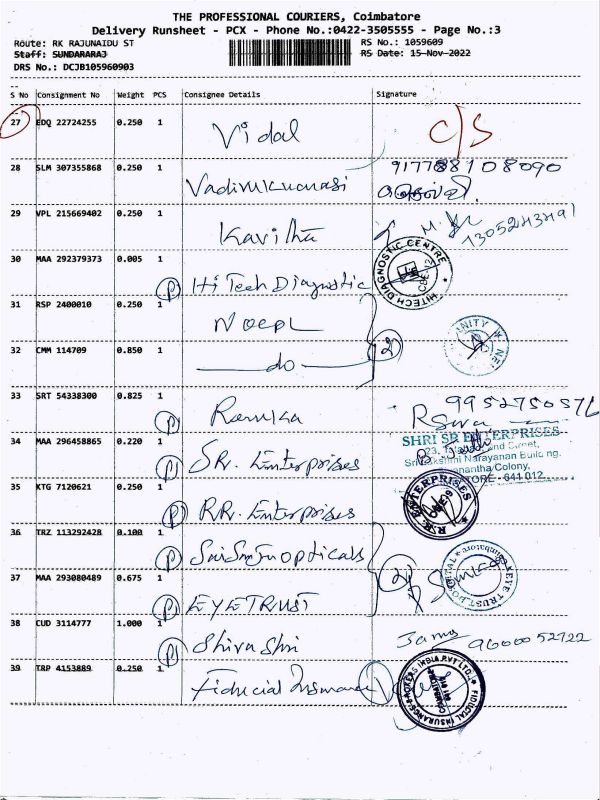 THE PROFESSIONAL COURIERS, Coimbatore
Delivery Runsheet - PCX - Phone No.:0422-3505555 - Page No.:3
Route: RK RAJUNAIDU ST
RS No.: 1059609
Staff: SUNDARARAJ
RS Date: 15-Nov-2022
DRS No.: DCJB105960903
S No Consignment No Weight PCS Consignee Details Signature
27 EDQ 22724255 0.250 1 Vidal C/S
28 SLM 307355868 0.250 1 Vadivukkarasi
29 VPL 215669402 0.250 1 Kavitha
30 MAA 292379373 0.005 1 (P) Hi Tech Diagnostic
HITECH DIAGNOSTIC CENTRE
31 RSP 2400010 0.250 1
32 CMM 114709 0.850 1 do (2)
33 SRT 54338300 0.825 1 (P)
34 MAA 296458865 0.220 1 (P) SR. Enterprises
SHRI SR ENTERPRISES
Narayanan Building,
Colony,
641 012
35 KTG 7120621 0.250 1 (P) RR. Enterprises
ENTERPRISES
36 TRZ 113292428 0.100 1 (P) opticals
37 MAA 293080489 0.675 1 (P) EYETRUST
EYE TRUST HOSPITAL
38 CUD 3114777 1.000 1 (P) Shiva Shri 9600052722
39 TRP 4153889 0.250 1 Fiducial Insurance
FIDUCIAL INSURANCE BROKERS INDIA PVT LTD.